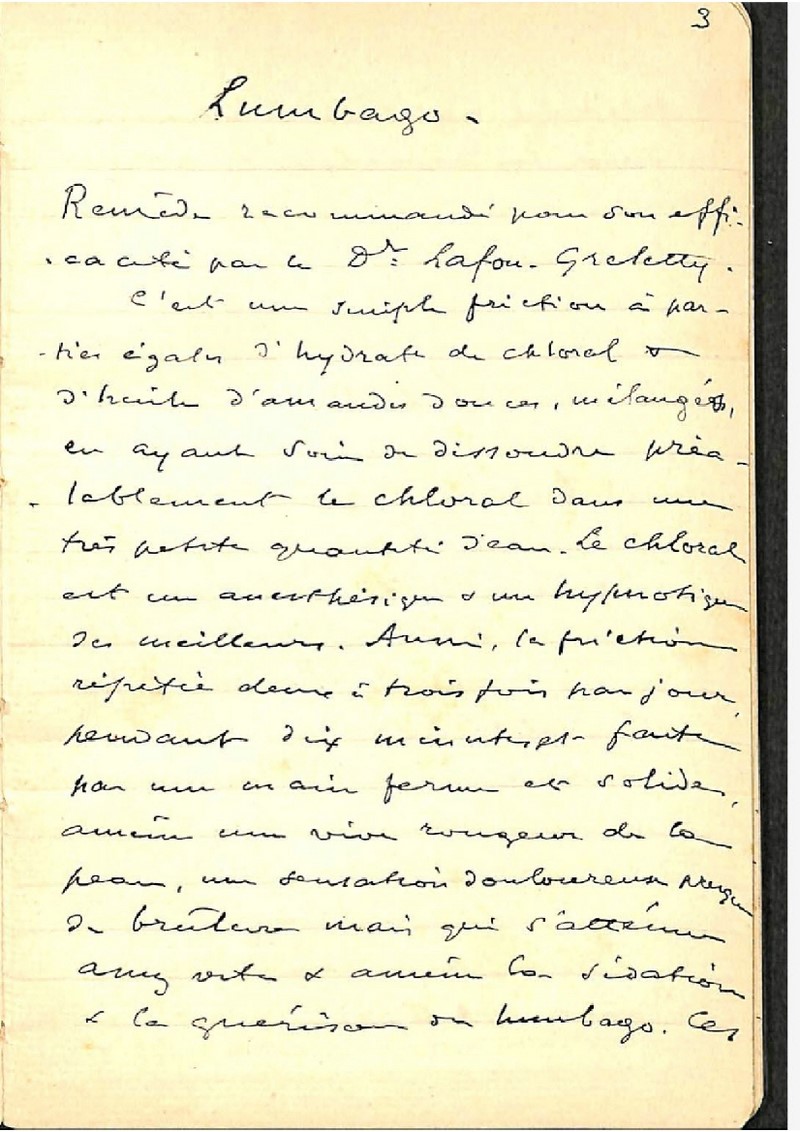 3
Lumbago.
Remède recommandé pour son effi-
cacité par le Dr Lafon-Greletty.
C'est une simple friction à par-
-ties égales d'hydrate de chloral et
d'huile d'amandes douces, mélangées,
en ayant soin de dissoudre préa-
lablement le chloral dans une
très petite quantité d'eau. Le chloral
est un anesthésique & un hypnotique
des meilleurs. Aussi, la friction
répétée deux à trois fois par jour,
pendant dix minutes et faite
par une main ferme et solide,
amène une vive rougeur de la
peau, une sensation douloureuse presque
de brûlure mais qui s'atténue
assez vite & amène la sédation
& la guérison du lumbago. Ces